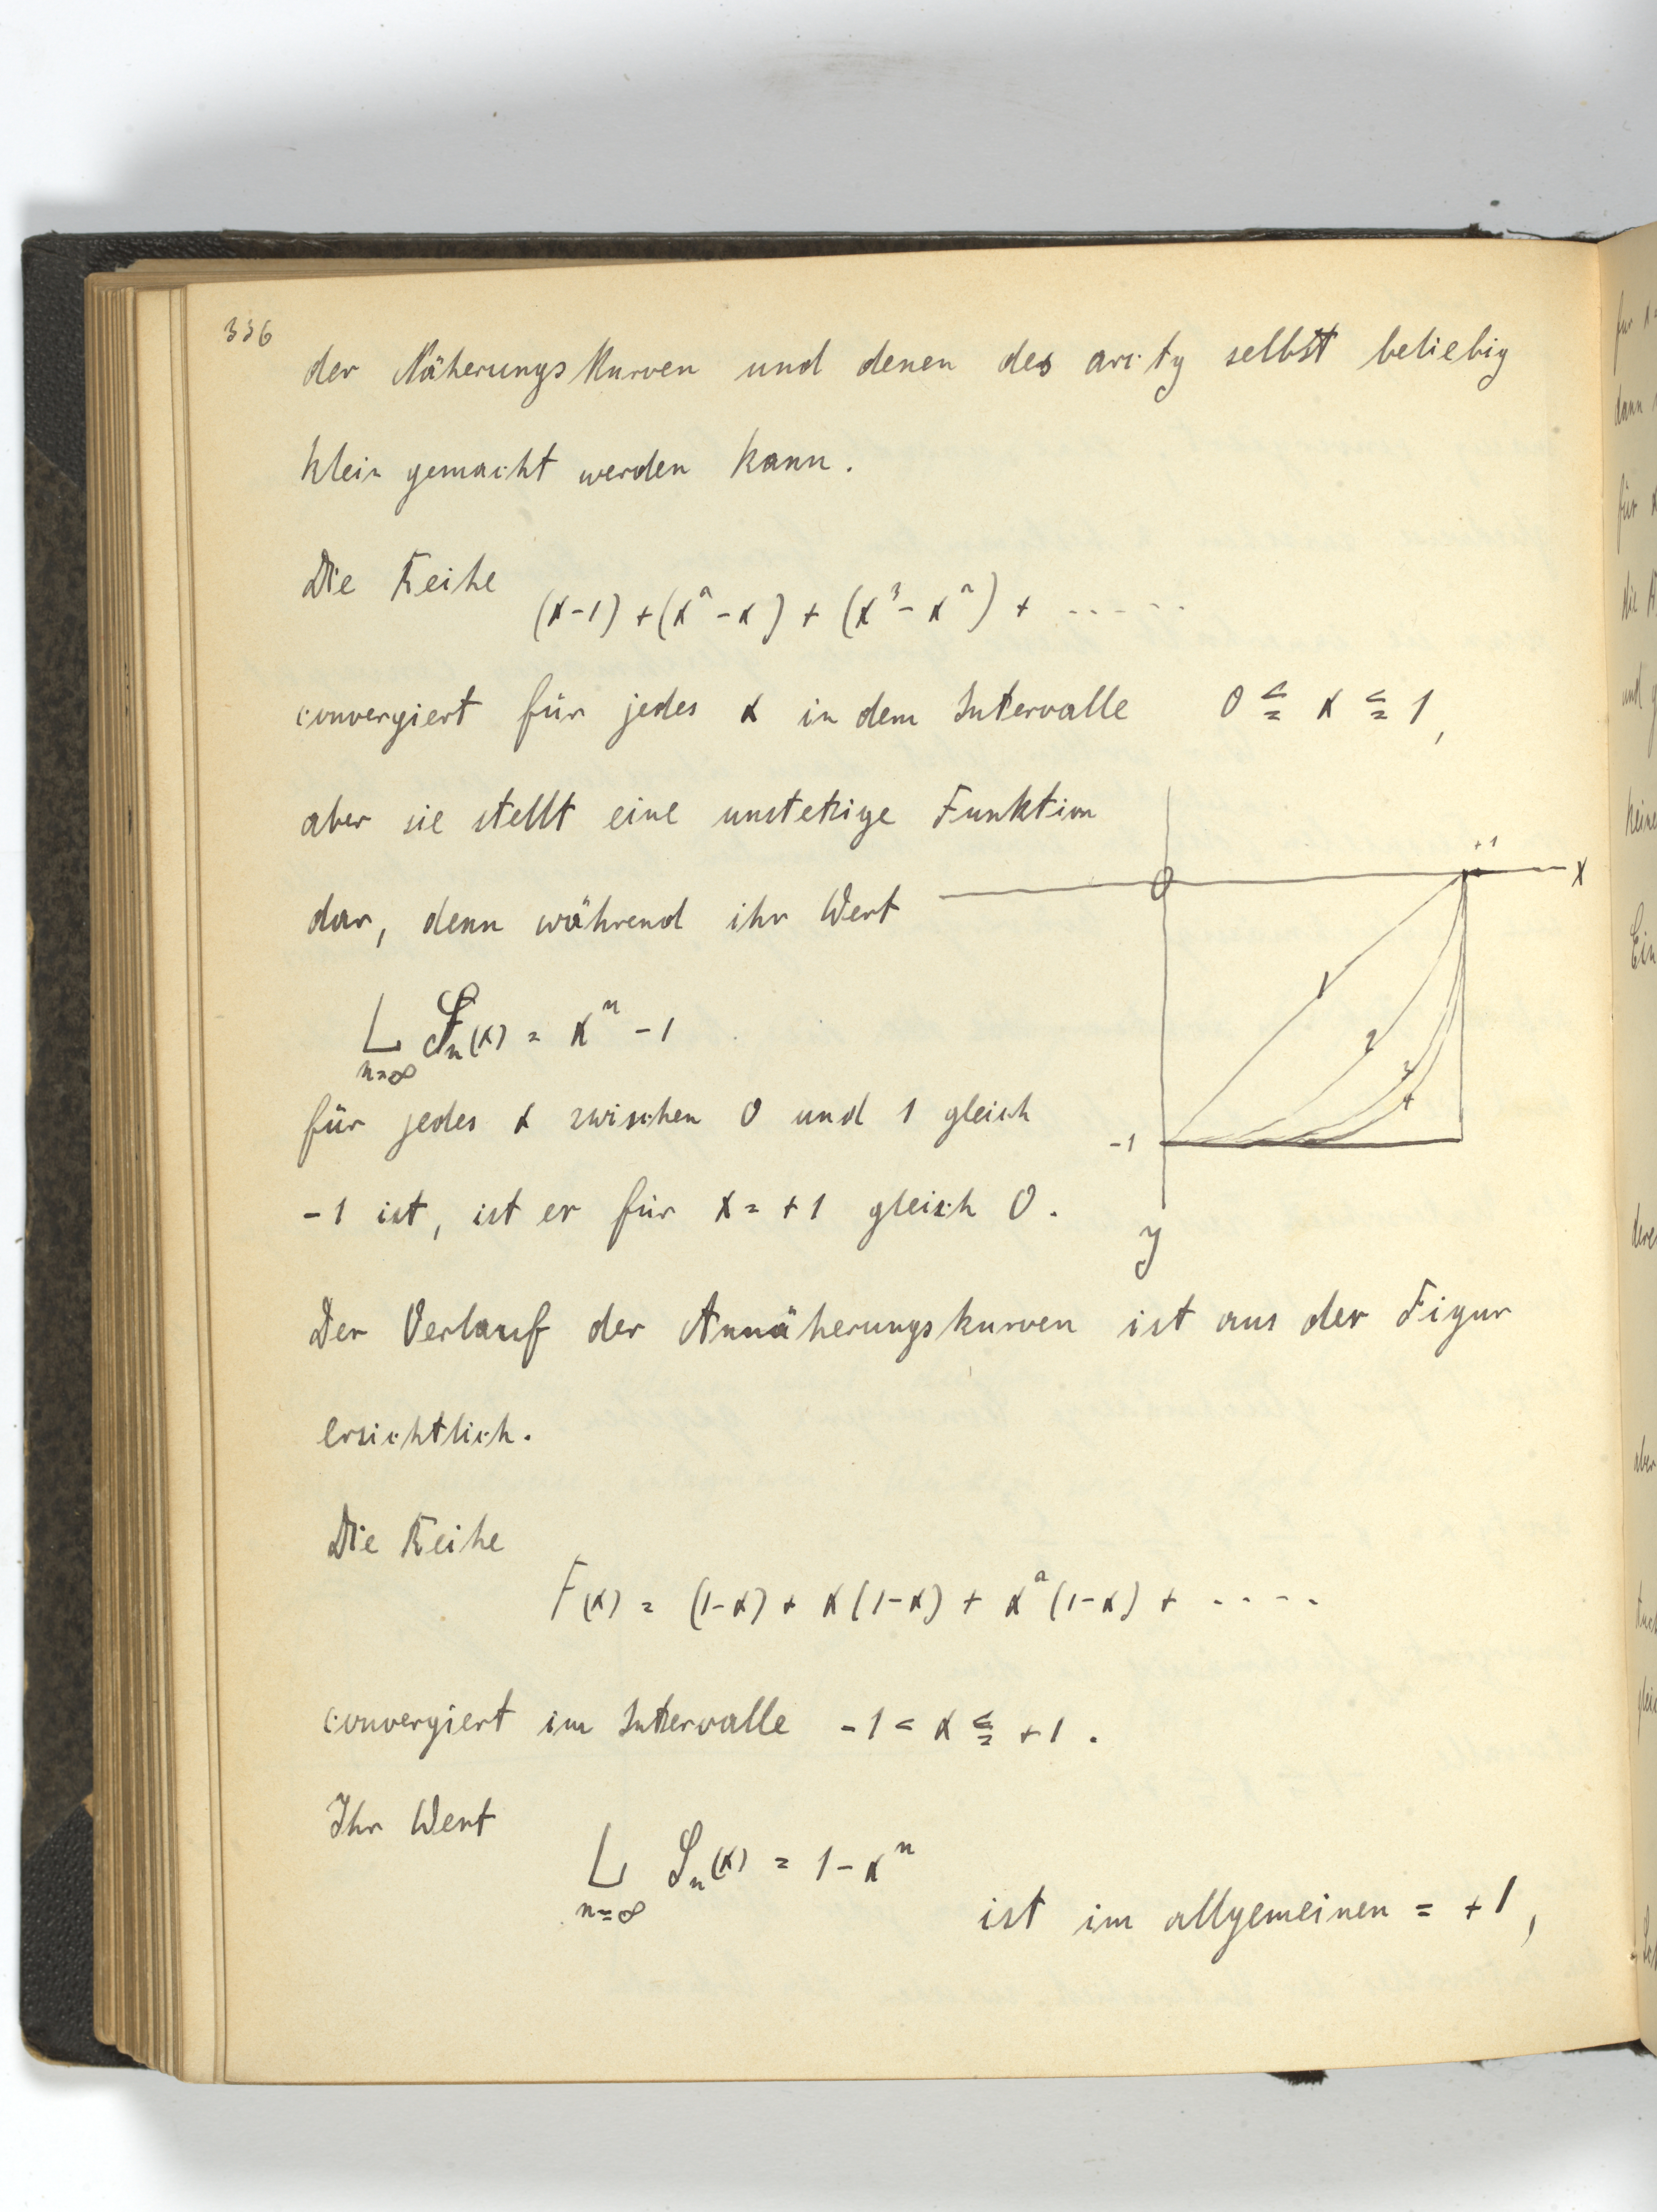 336
der Näherungskurven und denen des arctg selbst beliebig
klein gemacht werden kann.
Die Reihe
(x-1) + (x² - x) + (x³ - x²) + .....
convergiert für jedes x in dem Intervalle 0 ≦ x ≦ 1,
aber sie stellt eine unstetige Funktion
dar, denn während ihr Wert
L Sn(x) = xⁿ - 1
n=∞
für jedes x zwischen 0 und 1 gleich
-1 ist, ist er für x = +1 gleich 0.
+1
0
x
1
2
3
4
-1
y
Der Verlauf der Annäherungskurven ist aus der Figur
ersichtlich.
Die Reihe
F(x) = (1-x) + x(1-x) + x²(1-x) + ....
convergiert im Intervalle -1 < x ≦ +1.
Ihr Wert
L Sn(x) = 1 - xⁿ
n=∞
ist im allgemeinen = +1,